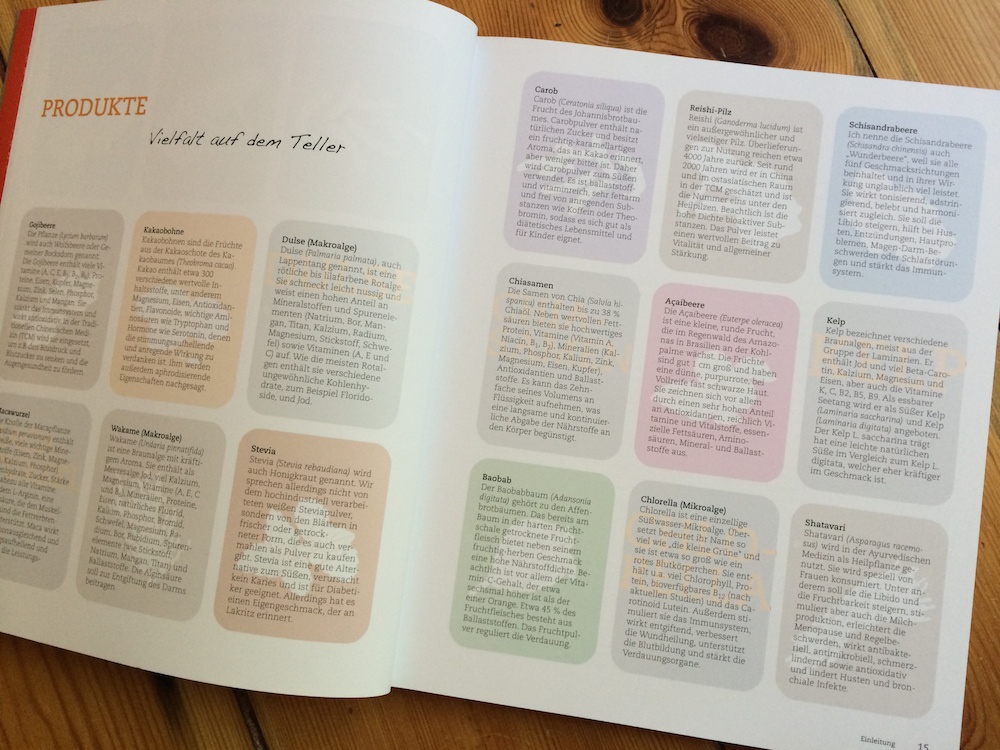 PRODUKTE
Vielfalt auf dem Teller
Gojibeere
Die Pflanze (Lycium barbarum)
wird auch Wolfsbeere oder Ge-
meiner Bocksdorn genannt.
Die Gojibeere enthält viele Vi-
tamine (A, C, E, B₁, B₂, B₆), Pro-
teine, Eisen, Kupfer, Magne-
sium, Zink, Selen, Phosphor,
Kalzium und Mangan. Sie
stärkt das Immunsystem und
wirkt antioxidativ. In der Tradi-
tionellen Chinesischen Medi-
zin (TCM) wird sie eingesetzt,
um z.B. den Blutdruck und
Blutzucker zu senken und die
Augengesundheit zu fördern.
Kakaobohne
Kakaobohnen sind die Früchte
aus der Kakaoschote des Ka-
kaobaumes (Theobroma cacao).
Kakao enthält etwa 300
verschiedene wertvolle In-
haltsstoffe, unter anderem
Magnesium, Eisen, Antioxidan-
tien, Flavonoide, wichtige Ami-
nosäuren wie Tryptophan und
Hormone wie Serotonin, denen
die stimmungsaufhellende
und anregende Wirkung zu
verdanken ist. Ihm werden
außerdem aphrodisierende
Eigenschaften nachgesagt.
Dulse (Makroalge)
Dulse (Palmaria palmata), auch
Lappentang genannt, ist eine
rötliche bis lilafarbene Rotalge.
Sie schmeckt leicht nussig und
weist einen hohen Anteil an
Mineralstoffen und Spurenele-
menten (Natrium, Bor, Man-
gan, Titan, Kalzium, Radium,
Magnesium, Stickstoff, Schwe-
fel) sowie Vitaminen (A, E und
C) auf. Wie die meisten Rotal-
gen enthält sie verschiedene
ungewöhnliche Kohlenhy-
drate, zum Beispiel Florido-
side, und Jod.
Macawurzel
Die Knolle der Macapflanze
(Lepidium peruvianum) enthält
Wakame (Makroalge)
Wakame (Undaria pinnatifida)
ist eine Braunalge mit kräfti-
gem Aroma. Sie enthält als
Meeresalge Jod, viel Kalzium,
Magnesium, Vitamine (A, E, C
und B₂), Mineralien, Proteine,
Eisen, natürliches Fluorid,
Kalium, Phosphor, Bromid,
Schwefel, Magnesium, Ra-
dium, Bor, Rubidium, Spuren-
elemente (wie Stickstoff,
Natrium, Mangan, Titan) und
Ballaststoffe. Die Alginsäure
soll zur Entgiftung des Darms
beitragen.
Stevia
Stevia (Stevia rebaudiana) wird
auch Honigkraut genannt. Wir
sprechen allerdings nicht von
dem hochindustriell verarbei-
teten, weißen Steviapulver,
sondern von den Blättern in
frischer oder getrock-
neter Form, die es auch ver-
mahlen als Pulver zu kaufen
gibt. Stevia ist eine gute Alter-
native zum Süßen, verursacht
kein Karies und ist für Diabeti-
ker geeignet. Allerdings hat es
einen Eigengeschmack, der an
Lakritz erinnert.
Carob
Carob (Ceratonia siliqua) ist die
Frucht des Johannisbrotbau-
mes. Carobpulver enthält na-
türlichen Zucker und besitzt
ein fruchtig-karamellartiges
Aroma, das an Kakao erinnert,
aber weniger bitter ist. Daher
wird Carobpulver zum Süßen
verwendet. Es ist ballaststoff-
und vitaminreich, sehr fettarm
und frei von anregenden Sub-
stanzen wie Koffein oder Theo-
bromin, sodass es sich gut als
diätetisches Lebensmittel und
für Kinder eignet.
Reishi-Pilz
Reishi (Ganoderma lucidum) ist
ein außergewöhnlicher und
vielseitiger Pilz. Überlieferun-
gen zur Nutzung reichen etwa
4000 Jahre zurück. Seit rund
2000 Jahren wird er in China
und im ostasiatischen Raum
in der TCM geschätzt und ist
die Nummer eins unter den
Heilpilzen. Beachtlich ist die
hohe Dichte bioaktiver Sub-
stanzen. Das Pulver leistet
einen wertvollen Beitrag zu
Vitalität und allgemeiner
Stärkung.
Schisandrabeere
Ich nenne die Schisandrabeere
(Schisandra chinensis) auch
„Wunderbeere“, weil sie alle
fünf Geschmacksrichtungen
beinhaltet und in ihrer Wir-
kung unglaublich viel leistet.
Sie wirkt tonisierend, adstrin-
gierend, belebt und harmoni-
siert zugleich. Sie soll die
Libido steigern, hilft bei Hus-
ten, Entzündungen, Hautpro-
blemen, Magen-Darm-Be-
schwerden oder Schlafstörun-
gen und stärkt das Immun-
system.
Chiasamen
Die Samen von Chia (Salvia hi-
spanica) enthalten bis zu 38 %
Chiaöl. Neben wertvollen Fett-
säuren bieten sie hochwertiges
Protein, Vitamine (Vitamin A,
Niacin, B₁, B₂), Mineralien (Kal-
zium, Phosphor, Kalium, Zink,
Magnesium, Eisen, Kupfer),
Antioxidantien und Ballast-
stoffe. Es kann das Zehn-
fache seines Volumens an
Flüssigkeit aufnehmen, was
eine langsame und kontinuier-
liche Abgabe der Nährstoffe an
den Körper begünstigt.
Açaibeere
Die Açaibeere (Euterpe oleracea)
ist eine kleine, runde Frucht,
die im Regenwald des Amazo-
nas in Brasilien an der Kohl-
palme wächst. Die Früchte
sind gut 1 cm groß und haben
eine dünne, purpurrote, bei
Vollreife fast schwarze Haut.
Sie zeichnen sich vor allem
durch einen sehr hohen Anteil
an Antioxidantien, reichlich Vi-
tamine und Vitalstoffe, essen-
zielle Fettsäuren, Amino-
säuren, Mineral- und Ballast-
stoffe aus.
Kelp
Kelp bezeichnet verschiedene
Braunalgen, meist aus der
Gruppe der Laminarien. Er
enthält Jod und viel Beta-Caro-
tin, Kalzium, Magnesium und
Eisen, aber auch die Vitamine
K, C, B2, B5, B9. Als essbarer
Seetang wird er als Süßer Kelp
(Laminaria saccharina) und Kelp
(Laminaria digitata) angeboten.
Der Kelp L. saccharina trägt
hat eine leichte natürlichen
Süße im Vergleich zum Kelp L.
digitata, welcher eher kräftiger
im Geschmack ist.
Baobab
Der Baobabbaum (Adansonia
digitata) gehört zu den Affen-
brotbäumen. Das bereits am
Baum in der harten Frucht-
schale getrocknete Frucht-
fleisch bietet neben seinem
fruchtig-herben Geschmack
eine hohe Nährstoffdichte. Be-
achtlich ist vor allem der Vita-
min-C-Gehalt, der etwa
sechsmal höher ist als der
einer Orange. Etwa 45 % des
Fruchtfleisches besteht aus
Ballaststoffen. Das Fruchtpul-
ver reguliert die Verdauung.
Chlorella (Mikroalge)
Chlorella ist eine einzellige
Süßwasser-Mikroalge. Über-
setzt bedeutet ihr Name so
viel wie „die kleine Grüne“ und
sie ist etwa so groß wie ein
rotes Blutkörperchen. Sie ent-
hält u.a. viel Chlorophyll, Pro-
tein, bioverfügbares B₁₂ (nach
aktuellen Studien) und das Ca-
rotinoid Lutein. Außerdem sti-
muliert sie das Immunsystem,
wirkt entgiftend, verbessert
die Wundheilung, unterstützt
die Blutbildung und stärkt die
Verdauungsorgane.
Shatavari
Shatavari (Asparagus racemo-
sus) wird in der Ayurvedischen
Medizin als Heilpflanze ge-
nutzt. Sie wird speziell von
Frauen konsumiert. Unter an-
derem soll sie die Libido und
die Fruchtbarkeit steigern, sti-
muliert aber auch die Milch-
produktion, erleichtert die
Menopause und Regelbe-
schwerden, wirkt antibakte-
riell, antimikrobiell, schmerz-
lindernd sowie antioxidativ
und lindert Husten und bron-
chiale Infekte.
Einleitung 15